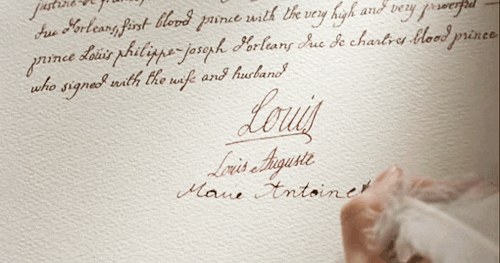 justine de
duc d'orleans, first blood prince with the very high and very powerful
prince Louis philippe-joseph d'orleans duc de chartres blood prince
who signed with the wife and husband
Louis
Louis Auguste
Marie Antoinet